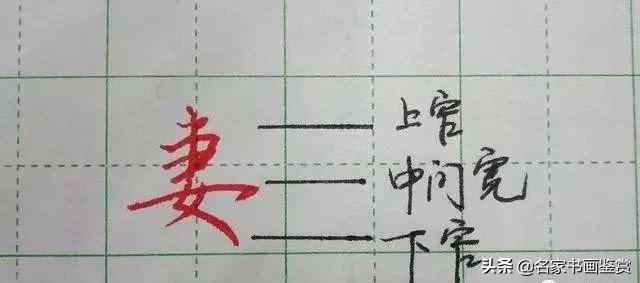 妻
上窄
中间宽
下窄
头条 @名家书画鉴赏